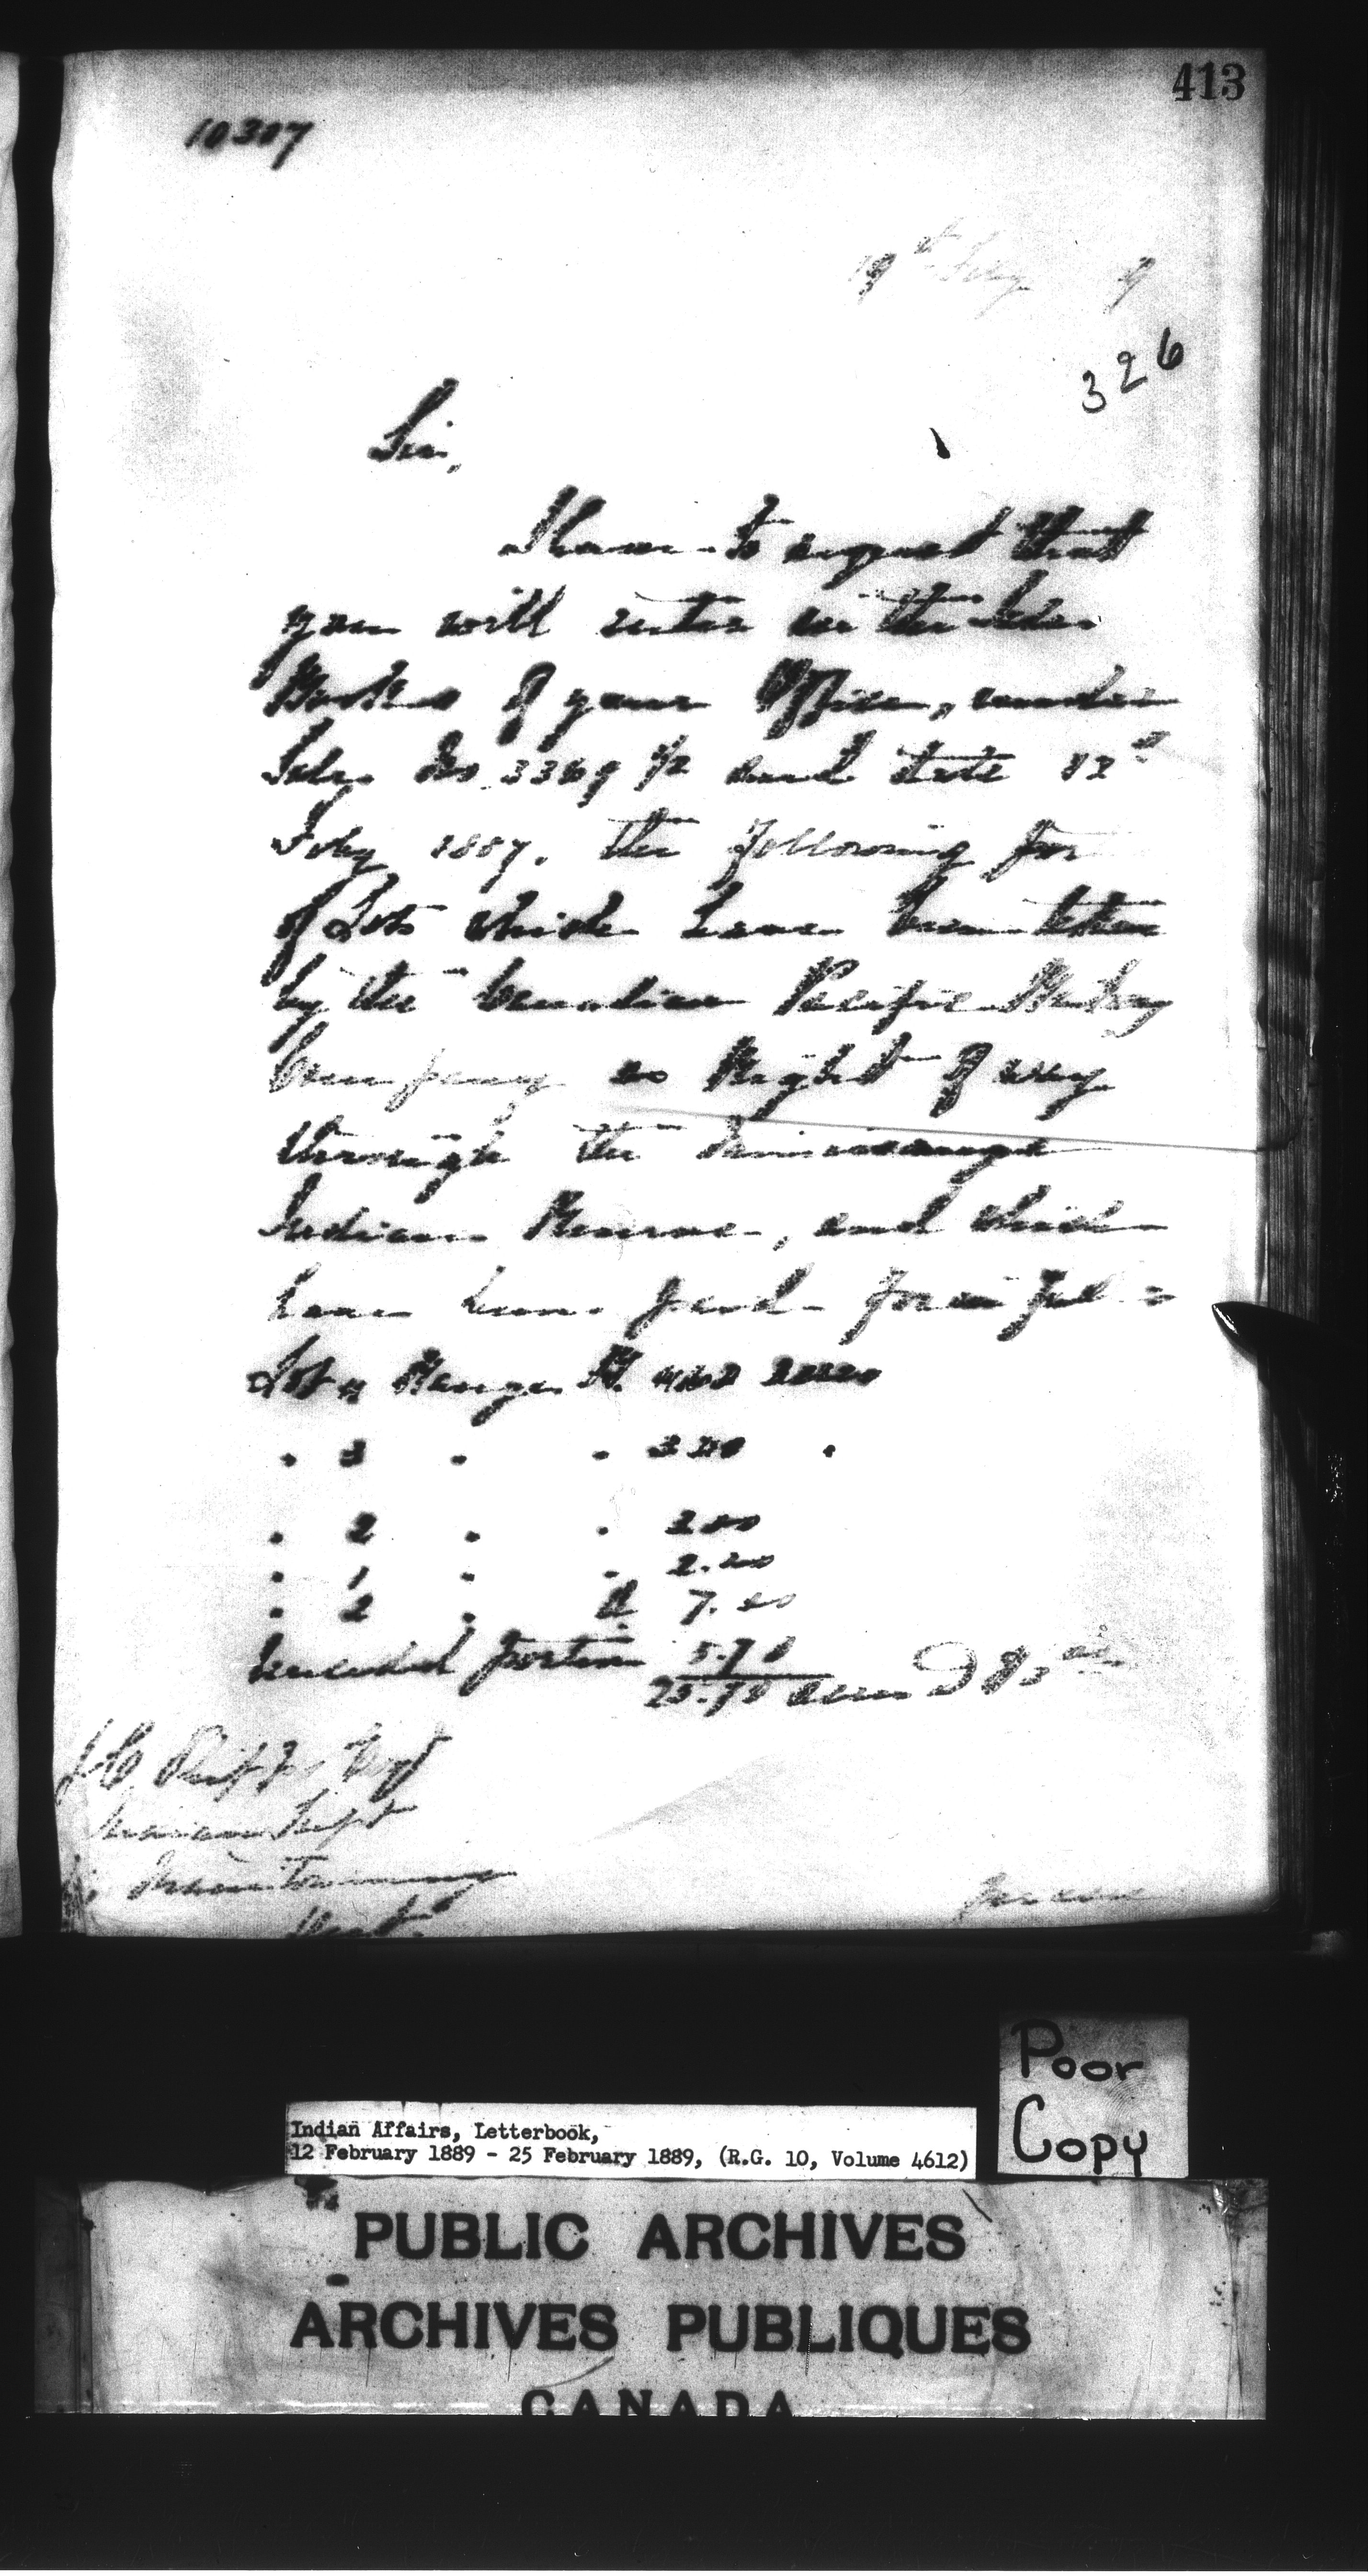 413
10307
19th Feby 9
326
Sir,
I have to request that
you will enter in the Sales
Books of your Office, under
Sale No. 3369 and date 12th
Feby 1887, the following por
of Lots which have been taken
by the Canadian Pacific Railway
Company as Right of way
through the
Indian Reserve, and which
have been paid for in full
Lot 4 Range
" 3 " "
" 2 " " 2.00
" 1 " " 2.20
" 2 "
portion 5.78
acres @ $
J C Phipps Esqr
Indian Supt
Manitowaning
Ont.
Indian Affairs, Letterbook,
12 February 1889 - 25 February 1889, (R.G. 10, Volume 4612)
Poor
Copy
PUBLIC ARCHIVES
ARCHIVES PUBLIQUES
CANADA